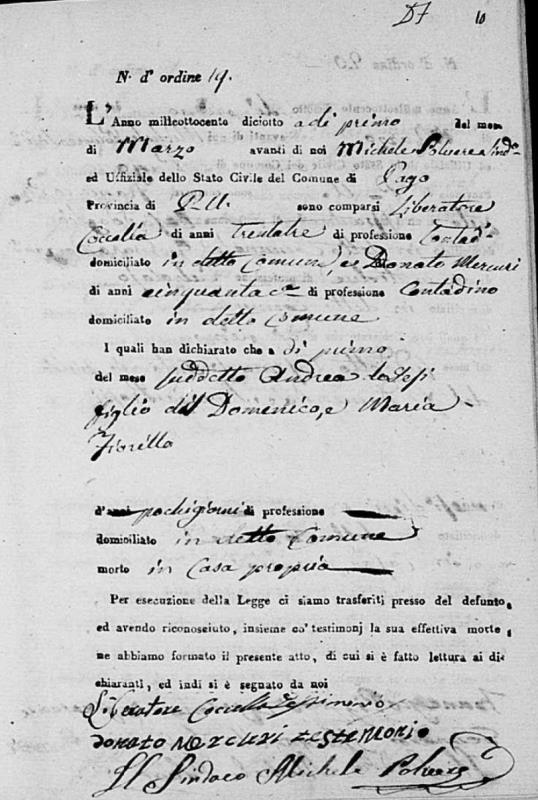 10
N. d' ordine 19.
L' Anno milleottocento diciotto a di primo del mese
di Marzo avanti di noi Michele Sind.o
ed Uffiziale dello Stato Civile del Comune di Pago
Provincia di P. U. sono comparsi Liberatore
Coccolla di anni trentatre di professione Contad.
domiciliato in detto Comune, e Donato Mercuri
di anni cinquanta c.a di professione Contadino
domiciliato in detto Comune
I quali han dichiarato che a di primo
del mese suddetto Andrea
figlio di Domenico, e Maria
Fiorillo
d'anni pochi giorni di professione
domiciliato in detto Comune
morto in Casa propria
Per esecuzione della Legge ci siamo trasferiti presso del defunto,
ed avendo riconosciuto, insieme co' testimonj la sua effettiva morte,
ne abbiamo formato il presente atto, di cui si è fatto lettura ai di-
chiaranti, ed indi si è segnato da noi
Liberatore Coccolla Testimonio
donato mercuri testemonio
Il Sindaco Michele